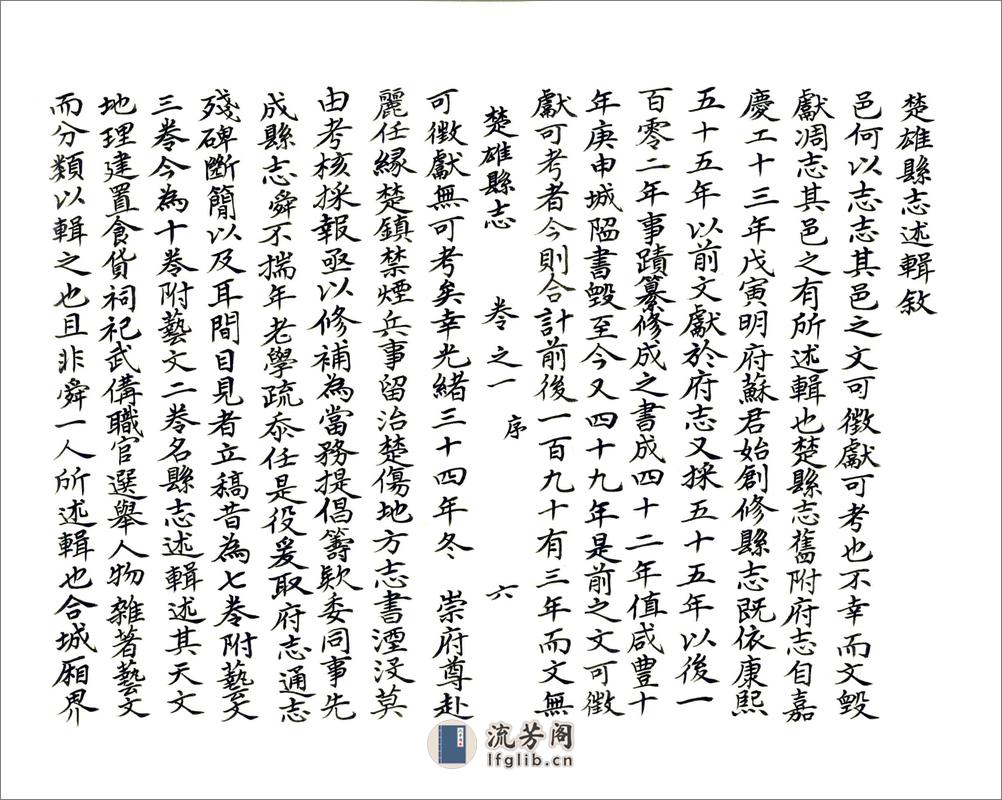 楚雄縣志述輯敘
邑何以志志其邑之文可徵獻可考也不幸而文毀
獻凋志其邑之有所述輯也楚縣志舊附府志自嘉
慶二十三年戊寅明府蘇君始創修縣志既依康熙
五十五年以前文獻於府志又採五十五年以後一
百零二年事蹟纂修成之書成四十二年值咸豊十
年庚申城陷書毀至今又四十九年是前之文可徵
獻可考者今則合計前後一百九十有三年而文無
楚雄縣志 卷之一 序 六
可徵獻無可考矣幸光緒三十四年冬 崇府尊赴
麗任緣楚鎮禁煙兵事留治楚傷地方志書湮沒莫
由考核採報亟以修補為當務提倡籌欵委同事先
成縣志舜不揣年老學疏忝任是役爰取府志通志
殘碑斷簡以及耳聞目見者立稿昔為七卷附藝文
三卷今為十卷附藝文二卷名縣志述輯述其天文
地理建置食貨祠祀武備職官選舉人物雜著藝文
而分類以輯之也且非舜一人所述輯也合城廂界
流芳阁
lfglib.cn